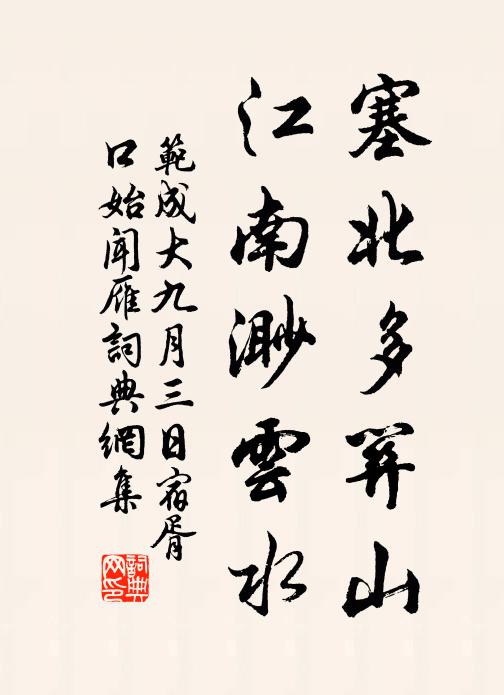 塞北多關山
江南渺雲水
範成大九月三日宿胥
口始闻雁詞典網集
詞典网印